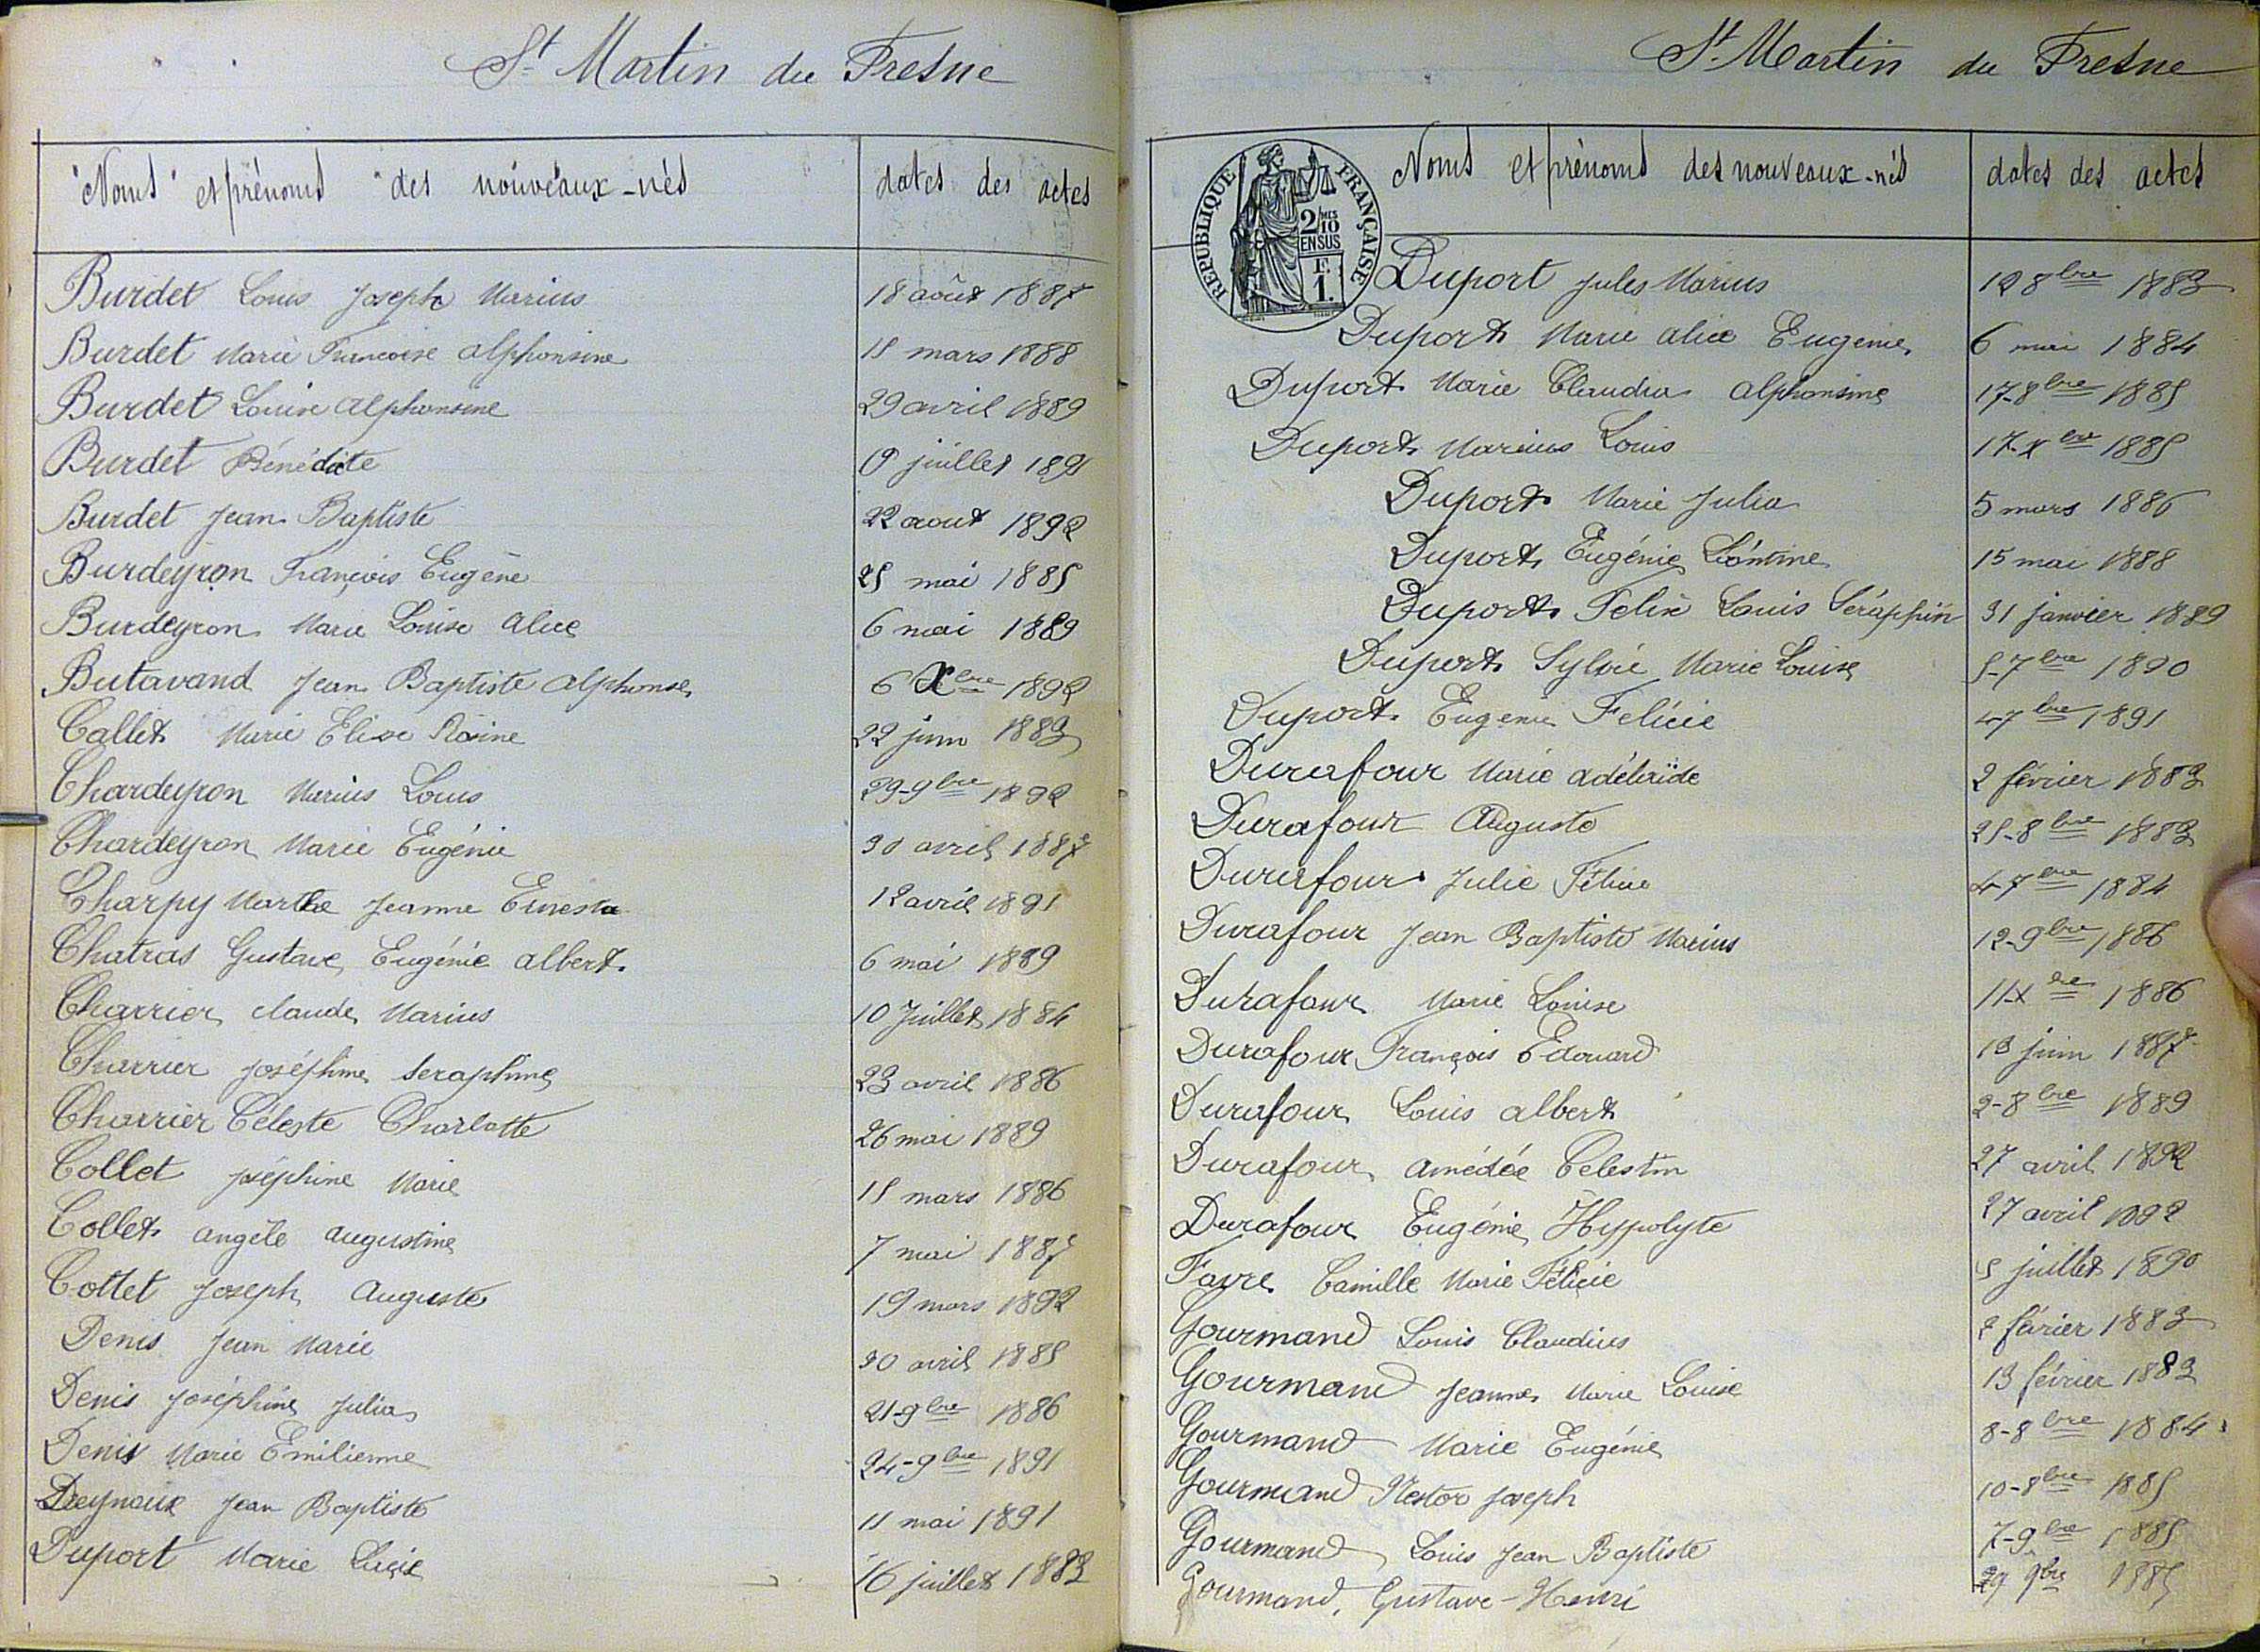 St Martin du Fresne
Noms et prénoms des nouveaux-nés dates des actes
Burdet Louis Joseph Marius 18 août 1887
Burdet Marie Francoise Alphonsine 15 mars 1888
Burdet Louise Alphonsine 29 avril 1889
Burdet Bénédicte 9 juillet 1891
Burdet Jean Baptiste 22 aout 1892
Burdeyron François Eugène 25 mai 1885
Burdeyron Marie Louise Alice 6 mai 1889
Butavand Jean Baptiste Alphonse 6 Xbre 1892
Callet Marie Elise Rosine 22 juin 1883
Chardeyron Marius Louis 29-9bre 1892
Chardeyron Marie Eugénie 30 avril 1887
Charpy Marthe Jeanne Ernesta 12 avril 1891
Chatras Gustave Eugénie Albert 6 mai 1889
Charrier Claude Marius 10 Juillet 1884
Charrier Joséphine Seraphine 23 avril 1886
Charrier Céleste Charlotte 26 mai 1889
Collet Joséphine Marie 15 mars 1886
Collet Angèle Augustine 7 mai 1887
Cottet Joseph Auguste 19 mars 1892
Denis Jean Marie 30 avril 1885
Denis Joséphine Julia 21-9bre 1886
Denis Marie Emilienne 24-9bre 1891
Deynoux Jean Baptiste 11 mai 1891
Duport Marie Lucie 16 juillet 1883
St Martin du Fresne
REPUBLIQUE FRANÇAISE
2/10MES
EN SUS
F.
1.
Noms et prénoms des nouveaux-nés dates des actes
Duport Jules Marius 12 8bre 1883
Duport Marie Alice Eugenie 6 mai 1884
Duport Marie Claudia Alphonsine 17-8bre 1885
Duport Marius Louis 17-Xbre 1885
Duport Marie Julia 5 mars 1886
Duport Eugénie Léontine 15 mai 1888
Duport Felix Louis Séraphin 31 janvier 1889
Duport Sylvie Marie Louise 5-7bre 1890
Duport Eugenie Felicie 4-7bre 1891
Durafour Marie Adélaïde 2 février 1883
Durafour Auguste 25-8bre 1883
Durafour Julie 4-7bre 1884
Durafour Jean Baptiste Marius 12-9bre 1886
Durafour Marie Louise 11-Xbre 1886
Durafour François Edouard 13 juin 1887
Durafour Louis Albert 2-8bre 1889
Durafour Amédée Celestin 27 avril 1892
Durafour Eugénie Hyppolyte 27 avril 1892
Favre Camille Marie Félicie 5 juillet 1890
Gourmand Louis Claudius 2 février 1883
Gourmand Jeanne Marie Louise 13 février 1883
Gourmand Marie Eugénie 8-8bre 1884
Gourmand Nestor Joseph 10-8bre 1885
Gourmand Louis Jean Baptiste 7-9bre 1885
Gourmand, Gustave-Henri 29 9bre 1885